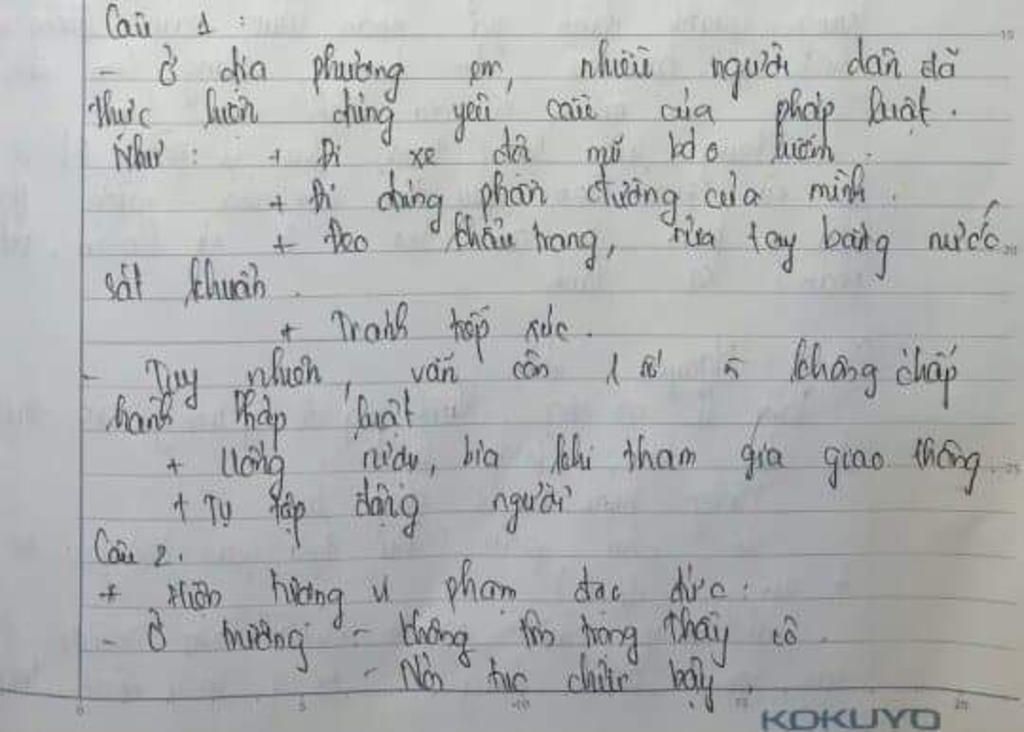 Câu 1 :
- Ở địa phương em, nhiều người dân đã
thực hiện đúng yêu cầu của pháp luật.
Như : + Đi xe đội mũ bảo hiểm.
+ Đi đúng phần đường của mình.
+ Đeo khẩu trang, rửa tay bằng nước
sát khuẩn.
+ Tránh tiếp xúc.
- Tuy nhiên, vẫn còn 1 số không chấp
hành Pháp luật
+ Uống rượu, bia khi tham gia giao thông.
+ Tụ tập đông người
Câu 2.
+ Hiện tượng vi phạm đạo đức :
- Ở trường - không tôn trọng thầy cô.
- Nói tục chửi bậy.
KOKUYO
0 5 10 15 20